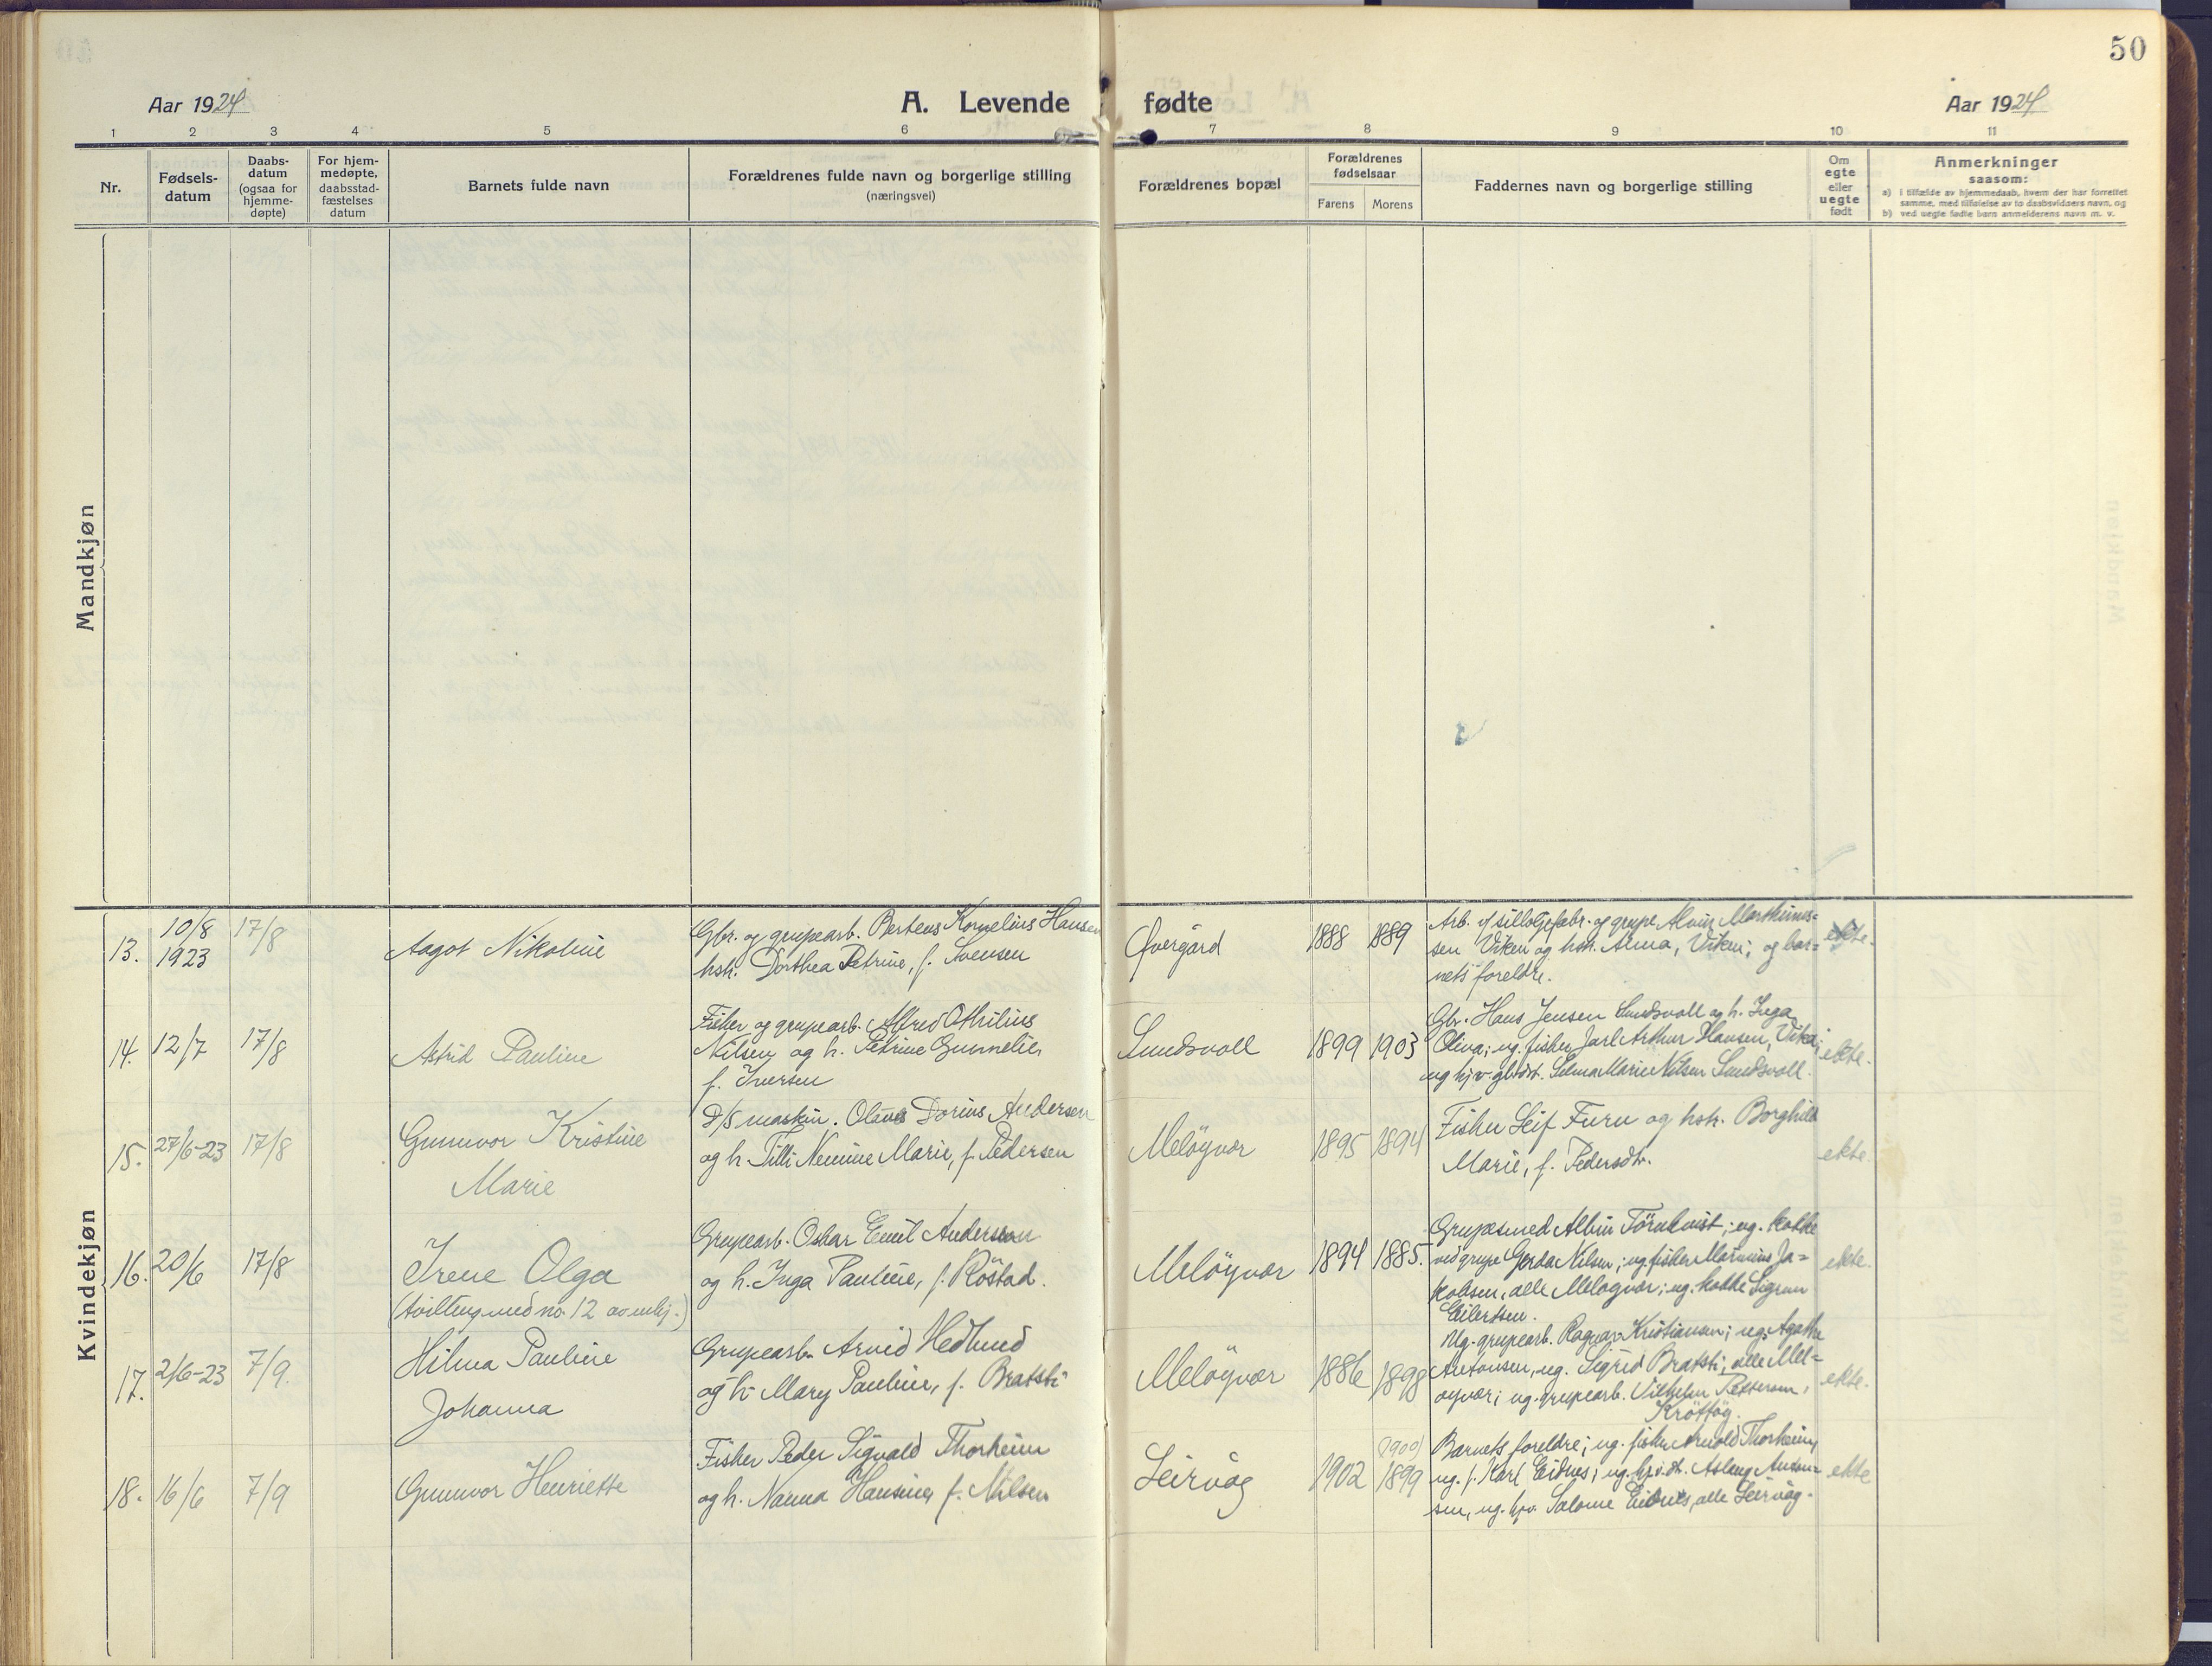 50
Aar 1924 A. Levende fødte Aar 1924
1 2 3 4 5 6 7 8 9 10 11
Nr.
Fødsels-
datum
Daabs-
datum
(ogsaa for
hjemme-
døpte)
For hjem-
medøpte,
daabsstad-
fæstelses
datum
Barnets fulde navn
Forældrenes fulde navn og borgerlige stilling
(næringsvei)
Forældrenes bopæl
Forældrenes
fødselsaar
Farens Morens
Faddernes navn og borgerlige stilling
Om
egte
eller
uegte
født
Anmerkninger
saasom:
a) i tilfælde av hjemmedaab, hvem der har forrettet
samme, med tilføielse av to daabsvidners navn, og
b) ved uegte fødte barn anmelderens navn m. v.
Mandkjøn
Kvindekjøn
13.
10/8
1923
17/8
Aagot Nikoline
Gbr. og grupearb. Berteus Kornelius Hansen
hstr. Dorthea Petrine, f. Svensen
Øvergård
1888 1889
Arb. v/ sildoljefabr. og grupe Alvin Marthinus=
sen Viken og hstr. Anna, Viken; og bar=
nets foreldre.
ekte.
14. 12/7 17/8
Astrid Pauline
Fisker og grupearb. Alfred Othilius
Nilsen og h. Petrine Gunnelie
f. Iversen
Sundsvoll
1899 1903
Gbr. Hans Jensen Sundsvoll og h. Inga
Oliva; ug. fisker Jarl Arthur Hansen, Vika;
ug hjv. gbrdtr. Selma Marie Nilsen Sundsvoll.
ekte.
15. 27/6-23 17/8
Gunnvor Kristine
Marie
D/S maskin. Olaus Dorius Andersen
og h. Tilli Nennine Marie, f. Pedersen
Meløyvær
1895 1894
Fisker Leif Furu og hstr. Borghild
Marie, f. Pedersdtr.
ekte.
16. 20/6 17/8
Irene Olga
(tvilling med no. 12 av mkj.)
Grupearb. Oskar Emil Anderssen
og h. Inga Pauline, f. Röstad.
Meløyvær
1894 1885.
Grupesmed Albin Törnkvist; ug. kokke
ved grupe Gerda Nilsen; ug. fisker Marinius Ja=
kobsen, alle Meløyvær; ug. kokke Sigrun
Eilertsen.
ekte.
17. 2/6-23 7/9.
Hilma Pauline
Johanna
Grupearb. Arvid Hedlund
og h. Mary Pauline, f. Bratsti
Meløyvær
1886 1898
Ug. grupearb. Ragnar Kristiansen; ug. Agathe
Antonsen, ug. Sigrid Bratsti, alle Mel=
øyvær; ug. grupearb. Vilhelm Pettersen,
Kröttøy.
ekte.
18. 16/6 7/9
Gunnvor Henriette
Fisker Peder Sigvald Thorheim
og h. Nanna Hansine, f. Nilsen
Leirvåg
1902
(1900)
1899
Barnets foreldre; ug. fisker Arnold Thorheim,
ug. f. Karl Eidnes; ug. hj.v.dtr. Aslaug Anton=
sen, ug. hjv. Salome Eidnes, alle Leirvåg.
ekte